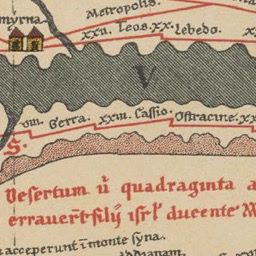 Metropolis.
myrna.
xxii. Leos. xx. Lebedo.
V
viii. Gerra. xxiii Cassio. Ostracine. xx
S.
Desertum ū quadraginta a
erraverūt filij isrl ducente M
acceperunt ī monte syna.